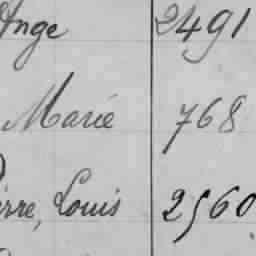 Ange 2491
Marie 768
irre, Louis 2560